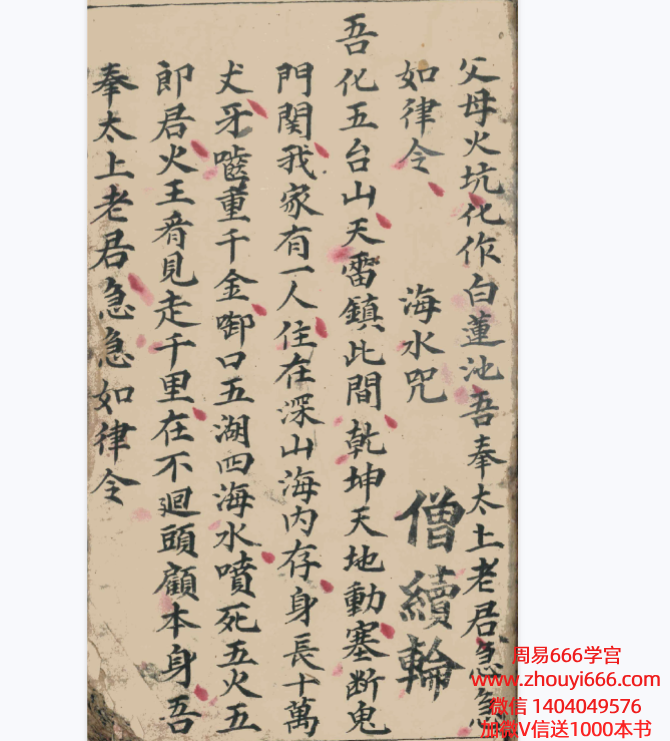 父母火坑化作白蓮池吾奉太上老君急急
如律令 海水咒 僧續輪
吾化五台山天雷鎮此間乾坤天地動塞断鬼
門関我家有一人住在深山海内存身長十萬
犬牙嚙重千金啣口五湖四海水噴死五火五
郎君火王看見走千里在不迴頭顧本身吾
奉太上老君急急如律令
周易666学宫
www.zhouyi666.com
微信 1404049576
加微V信送1000本书